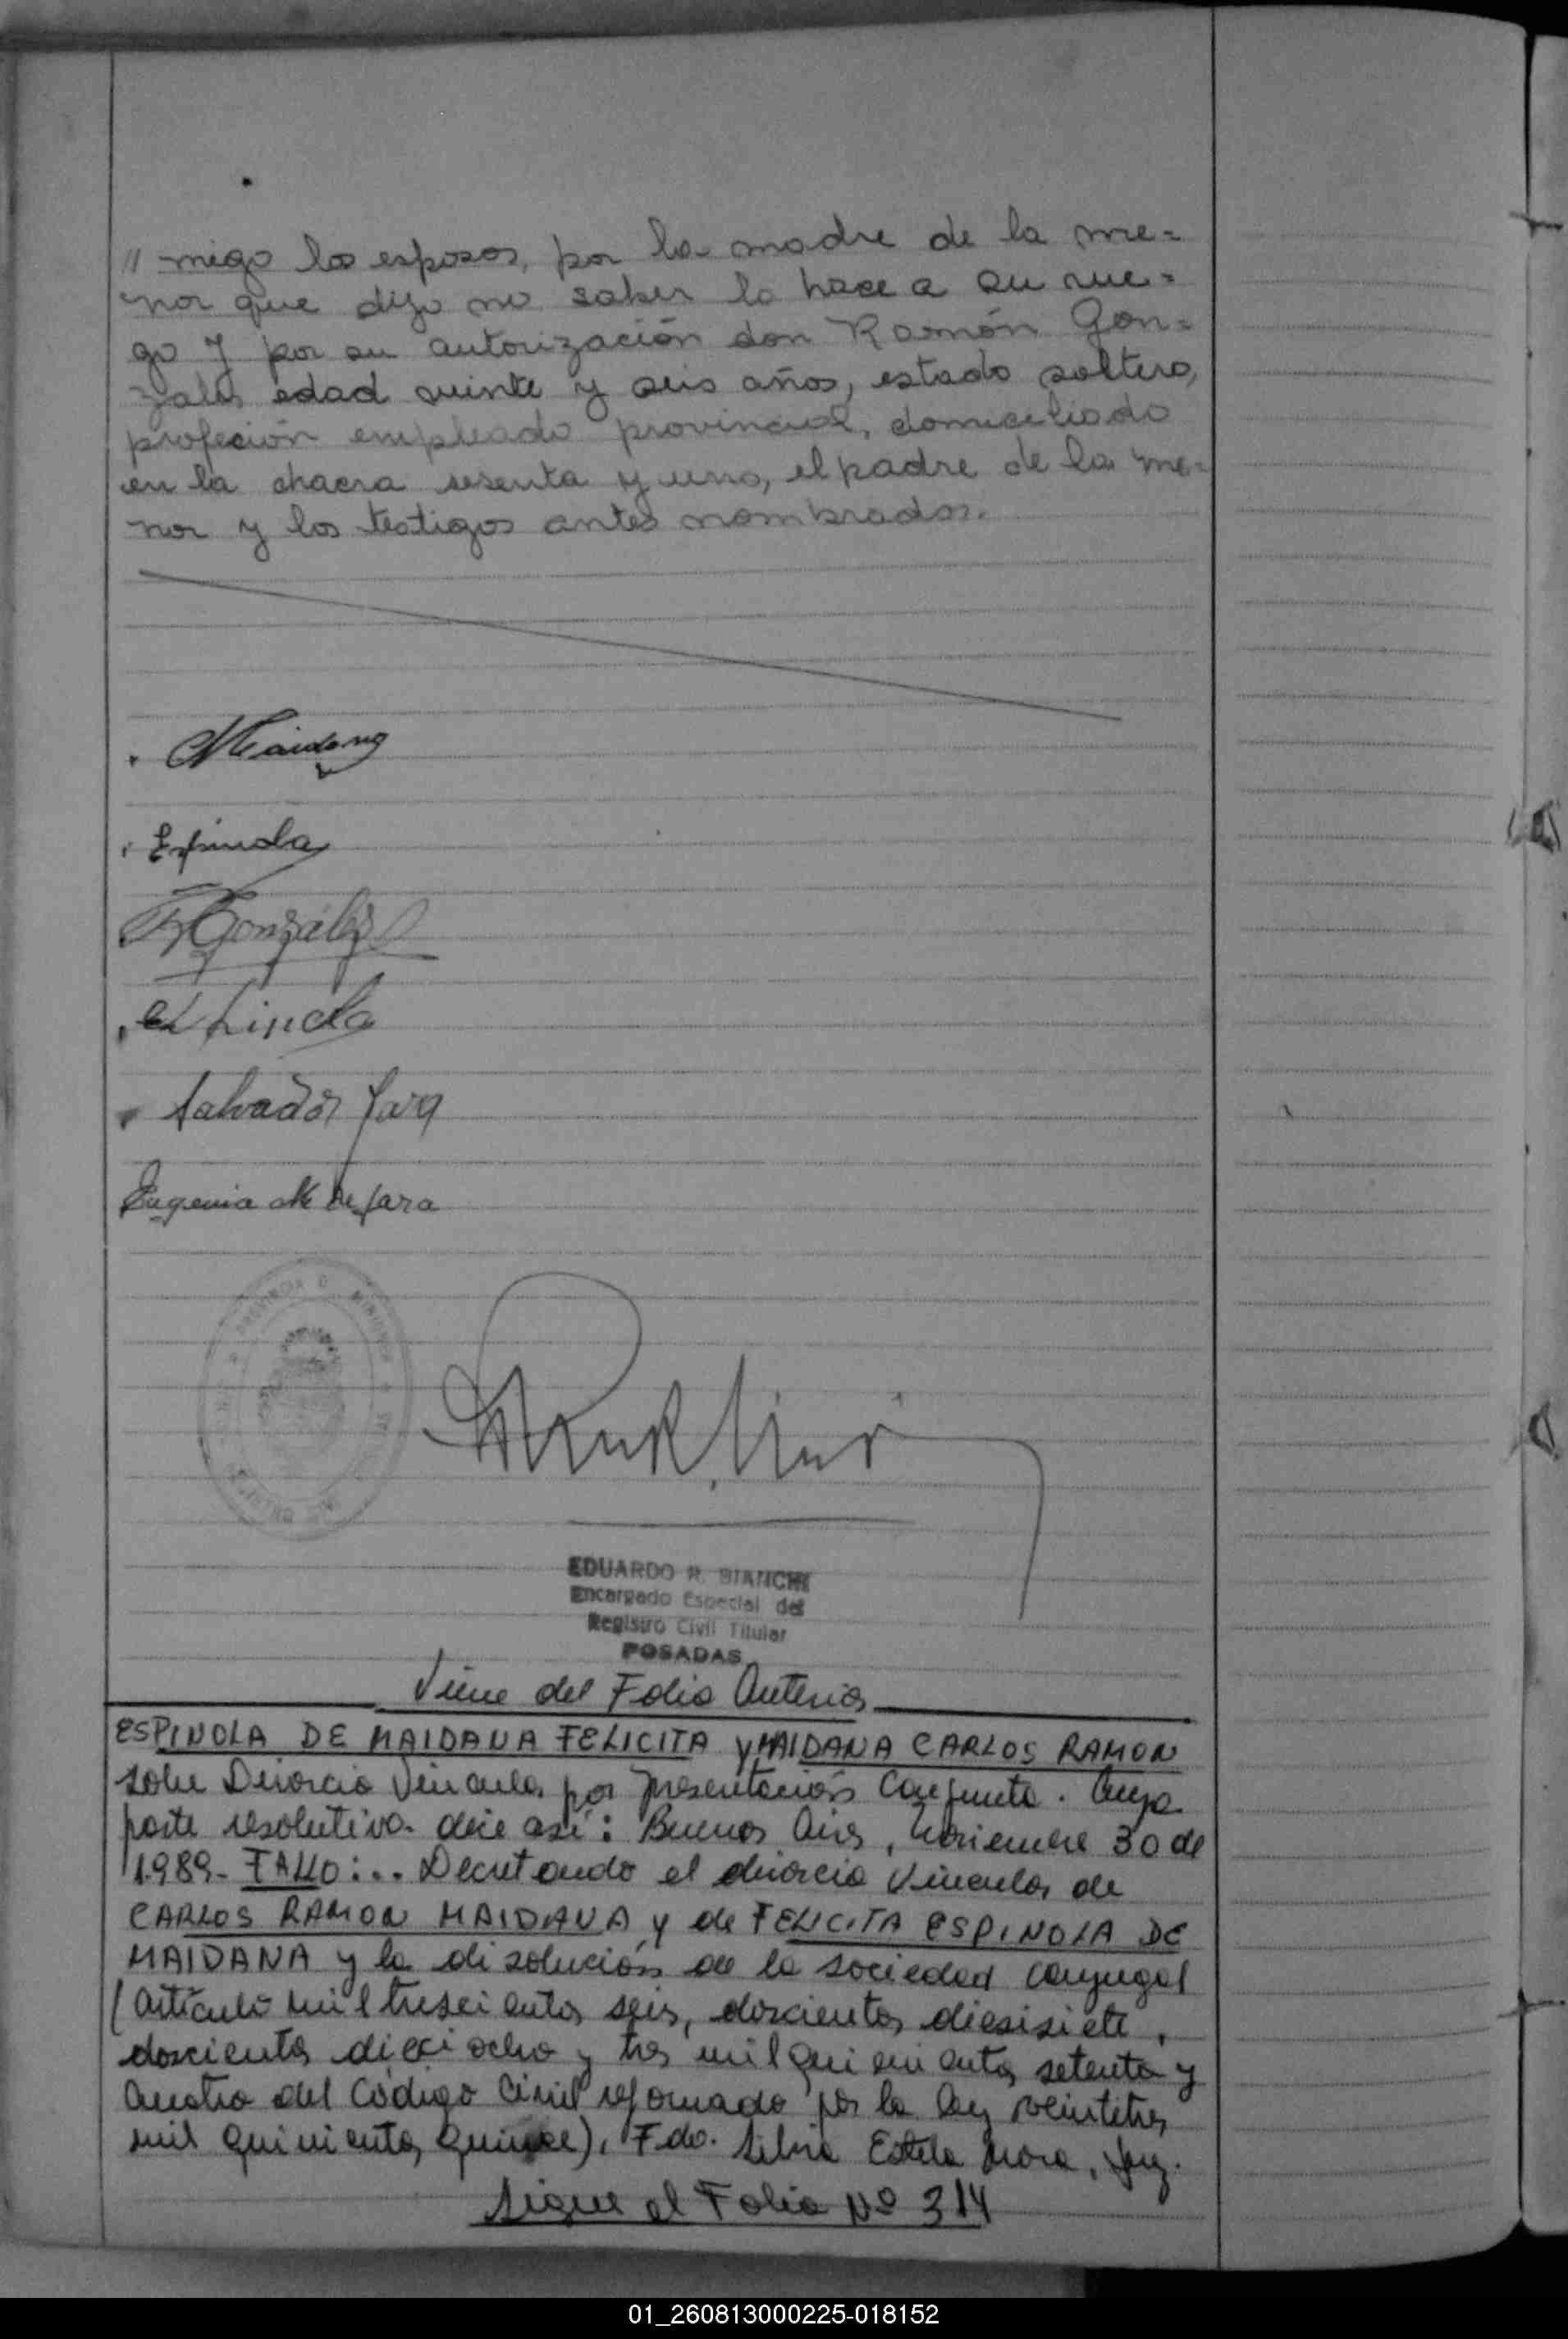 // migo los esposos, por la madre de la me=
nor que dijo no saber lo hace a su rue=
go y por su autorización don Ramón Gon=
zales edad veinte y seis años, estado soltero,
profesión empleado provincial, domiciliado
en la chacra sesenta y uno, el padre de la me=
nor y los testigos antes nombrados.
Maidana
Espinola
R González
Salvador Jara
Eugenia M de Jara
PROVINCIA DE MISIONES
EDUARDO R. BIANCHI
Encargado Especial del
Registro Civil Titular
POSADAS
Viene del Folio Anterior
ESPINOLA DE MAIDANA FELICITA y MAIDANA CARLOS RAMON
sobre Divorcio Vincular por presentación Conjunta. Cuya
parte resolutiva dice así: Buenos Aires, Noviembre 30 de
1.989- FALLO:... Decretando el divorcio Vincular de
CARLOS RAMON MAIDANA y de FELICITA ESPINOLA DE
MAIDANA y la disolución de la sociedad conyugal
(Artículo mil trescientos seis, doscientos diesisiete,
doscientos dieciocho y tres mil quinientos setenta y
cuatro del Código Civil reformado por la ley veintitres
mil quinientos quince). Fdo. Silvia Estela Mora, Juez.
Sigue al Folio Nº 314
01_260813000225-018152